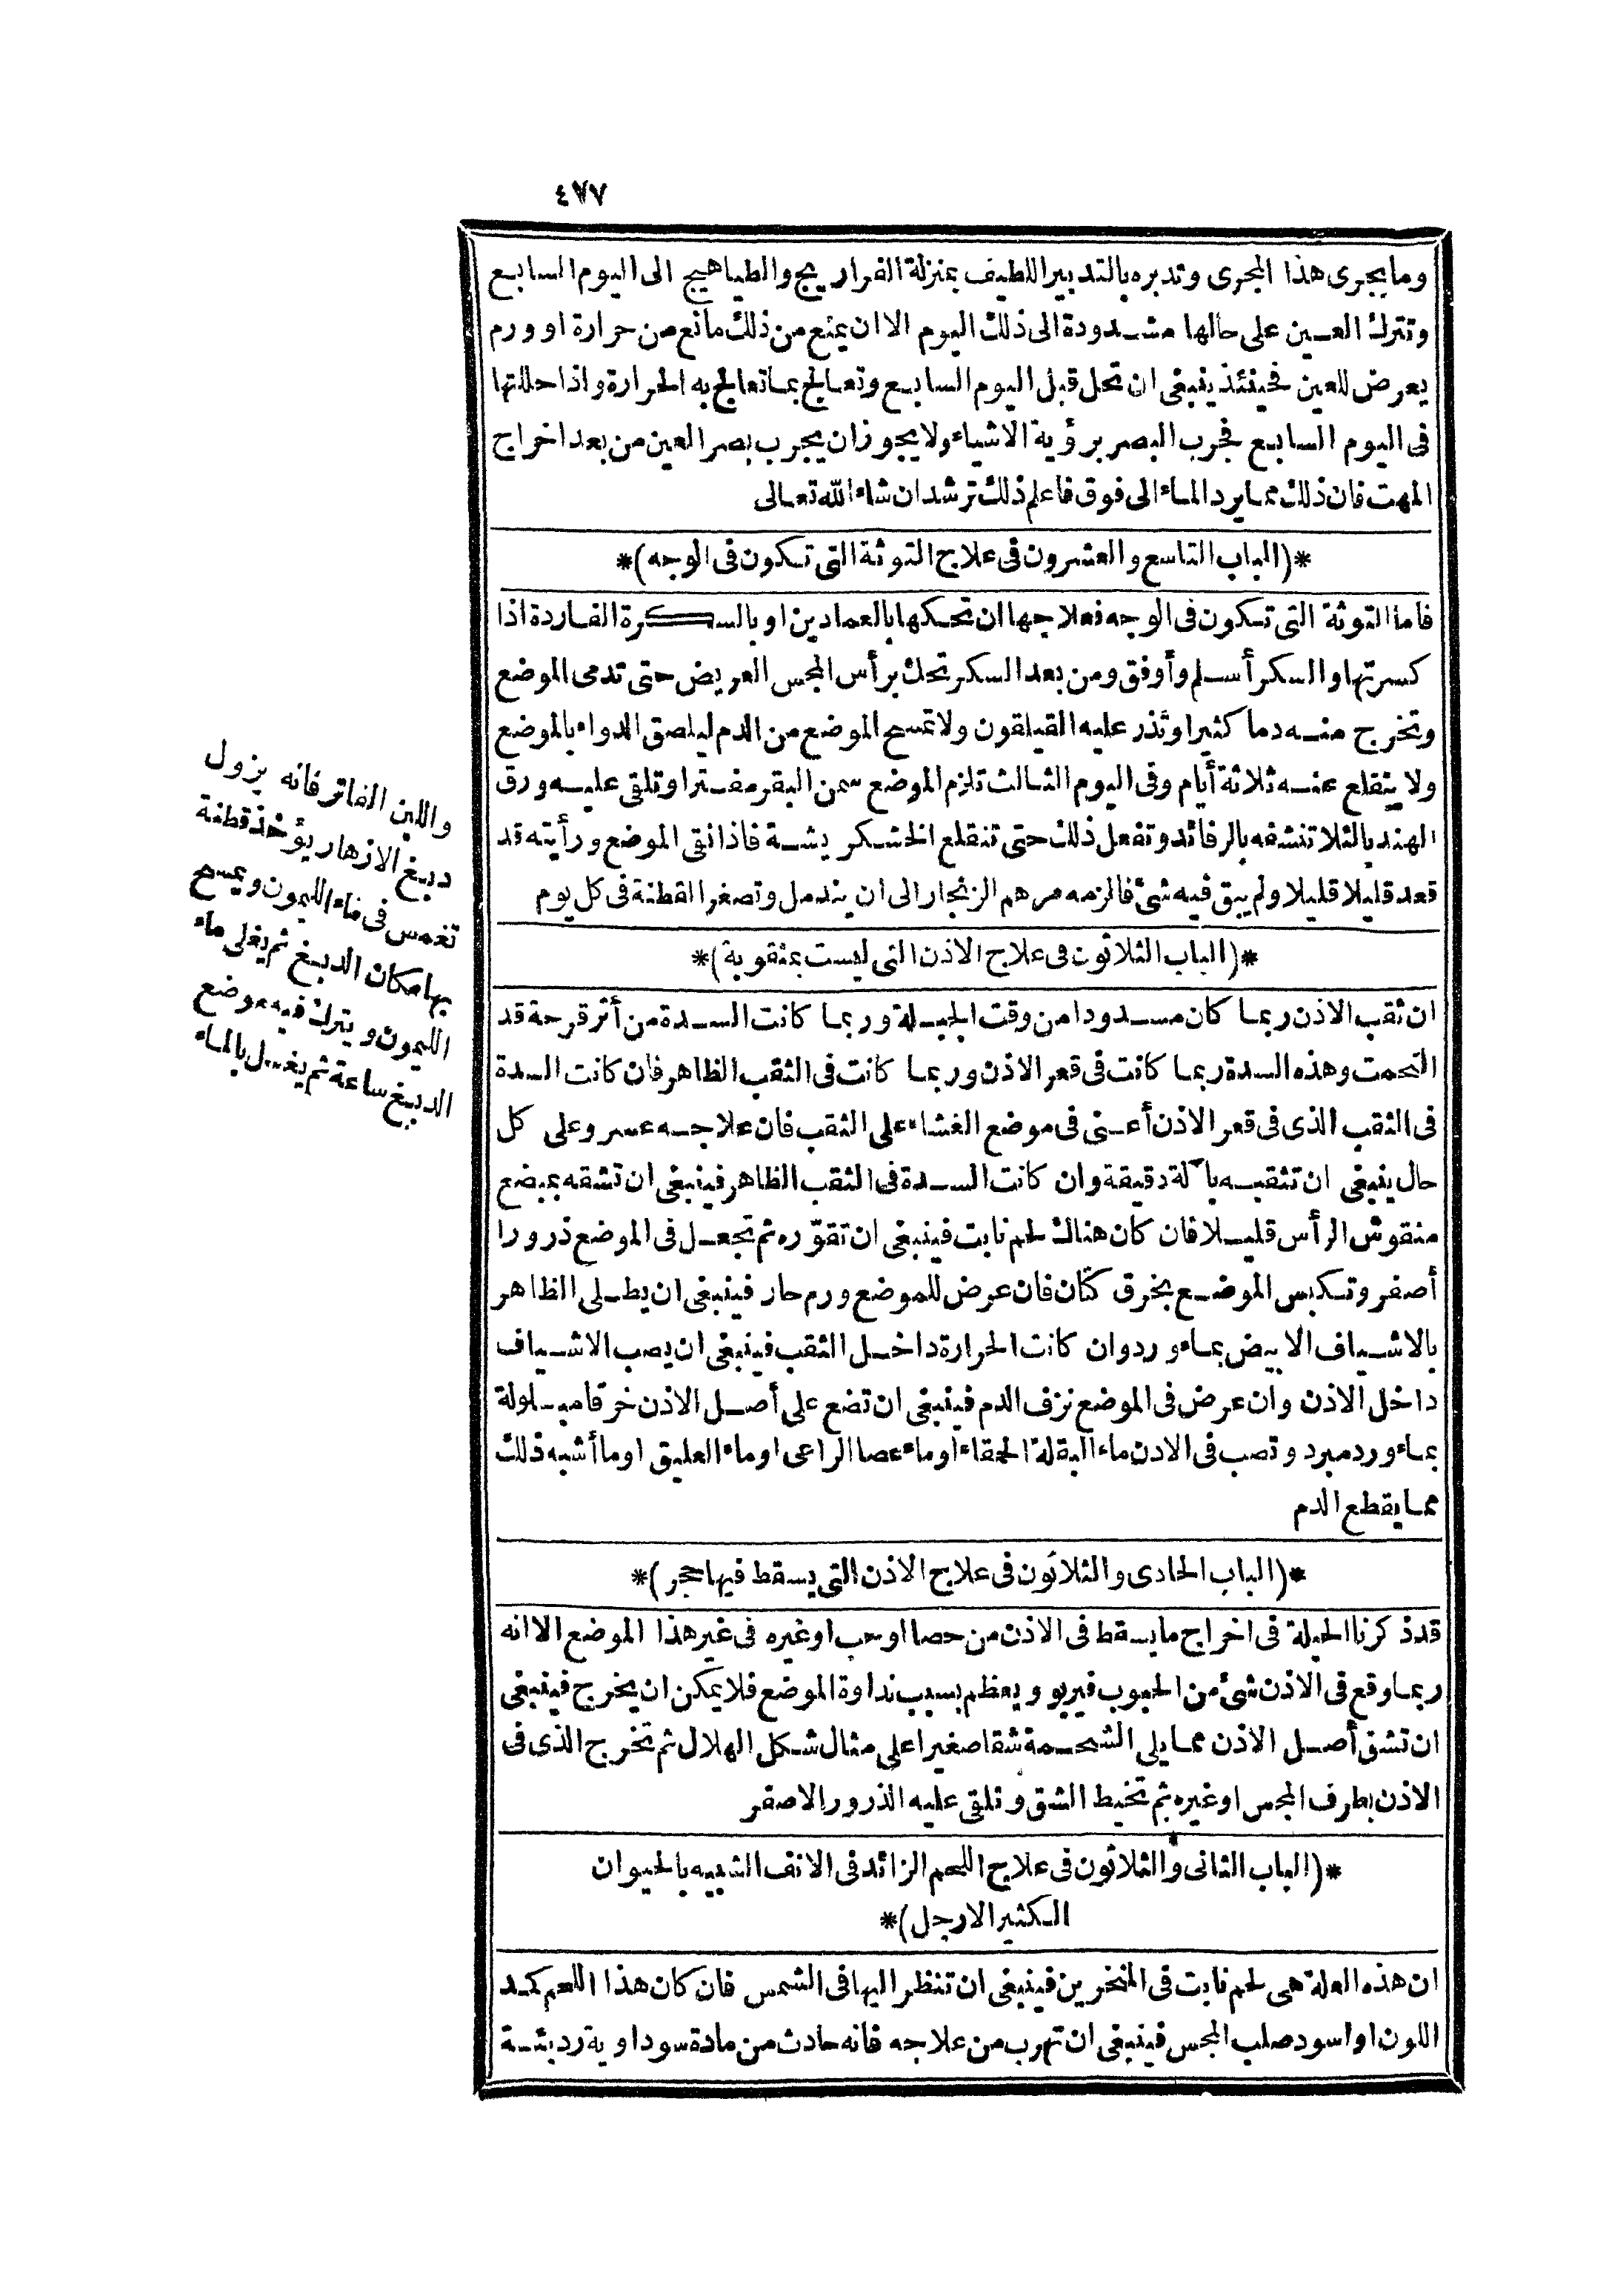 ٤٧٧
وما يجرى هذا المجرى وتدبره بالتدبير اللطيف بمنزلة الفراريج والطياهيج الى اليوم السابع
وتترك العين على حالها مشدودة الى ذلك اليوم الا ان يمنع من ذلك مانع من حرارة او ورم
يعرض للعين فحينئذ ينبغى ان تحل قبل اليوم السابع وتعالج بما تعالج به الحرارة واذا حللتها
فى اليوم السابع فجرب البصر برؤية الاشياء ولا يجوز ان يجرب بصر العين من بعد اخراج
المهت فان ذلك مما يرد الماء الى فوق فاعلم ذلك ترشد ان شاء الله تعالى
*(الباب التاسع والعشرون فى علاج التوثة التى تكون فى الوجه)*
فاما التوثة التى تكون فى الوجه فعلاجها ان تحكها بالعمادين او بالسكرة الفاردة اذا
كسرتها والسكر أسلم وأوفق ومن بعد السكر تحك برأس المجس العريض حتى تدمى الموضع
وتخرج منه دما كثيرا وتذر عليه القيلقون ولا تمسح الموضع من الدم ليلصق الدواء بالموضع
ولا ينقلع عنه ثلاثة أيام وفى اليوم الثالث تلزم الموضع سمن البقر مفترا وتلقى عليه ورق
الهندبا لئلا تنشفه بالرفائد وتفعل ذلك حتى تنقلع الخشكريشة فاذا نقى الموضع ورأيته قد
قعد قليلا قليلا ولم يبق فيه شئ فالزمه مرهم الزنجار الى ان يندمل وتصغر القطنة فى كل يوم
*(الباب الثلاثون فى علاج الاذن التى ليست بمثقوبة)*
ان ثقب الاذن ربما كان مسدودا من وقت الجبلة وربما كانت السدة من أثر قرحة قد
التحمت وهذه السدة ربما كانت فى قعر الاذن وربما كانت فى الثقب الظاهر فان كانت السدة
فى الثقب الذى فى قعر الاذن أعنى فى موضع الغشاء على الثقب فان علاجه عسر وعلى كل
حال ينبغى ان تثقبه بآلة دقيقة وان كانت السدة فى الثقب الظاهر فينبغى ان تشقه بمبضع
منقوش الرأس قليلا فان كان هناك لحم نابت فينبغى ان تقوّره ثم تجعل فى الموضع ذرورا
أصفر وتكبس الموضع بخرق كتان فان عرض للموضع ورم حار فينبغى ان يطلى الظاهر
بالاشياف الابيض بماء ورد وان كانت الحرارة داخل الثقب فينبغى ان يصب الاشياف
داخل الاذن وان عرض فى الموضع نزف الدم فينبغى ان تضع على أصل الاذن خرقا مبلولة
بماء ورد مبرد وتصب فى الاذن ماء البقلة الحمقاء او ماء عصا الراعى او ماء العليق او ما أشبه ذلك
مما يقطع الدم
*(الباب الحادى والثلاثون فى علاج الاذن التى يسقط فيها حجر)*
قد ذكرنا الحيلة فى اخراج ما يسقط فى الاذن من حصا او حب او غيره فى غير هذا الموضع الا انه
ربما وقع فى الاذن شئ من الحبوب فيربو ويعظم بسبب نداوة الموضع فلا يمكن ان يخرج فينبغى
ان تشق أصل الاذن مما يلى الشحمة شقا صغيرا على مثال شكل الهلال ثم تخرج الذى فى
الاذن بطرف المجس او غيره ثم تخيط الشق وتلقى عليه الذرور الاصفر
*(الباب الثانى والثلاثون فى علاج اللحم الزائد فى الانف الشبيه بالحيوان
الكثير الارجل)*
ان هذه العلة هى لحم نابت فى المنخرين فينبغى ان تنظر اليها فى الشمس فان كان هذا اللحم كمد
اللون او اسود صلب المجس فينبغى ان تهرب من علاجه فانه حادث من مادة سوداوية رديئة
واللبن الفاتر فانه يزول
دبغ الازهار يؤخذ قطنة
تغمس فى ماء الليمون ويمسح
بها مكان الدبغ ثم يغلى ماء
الليمون ويترك فيه موضع
الدبغ ساعة ثم يغسل بالماء